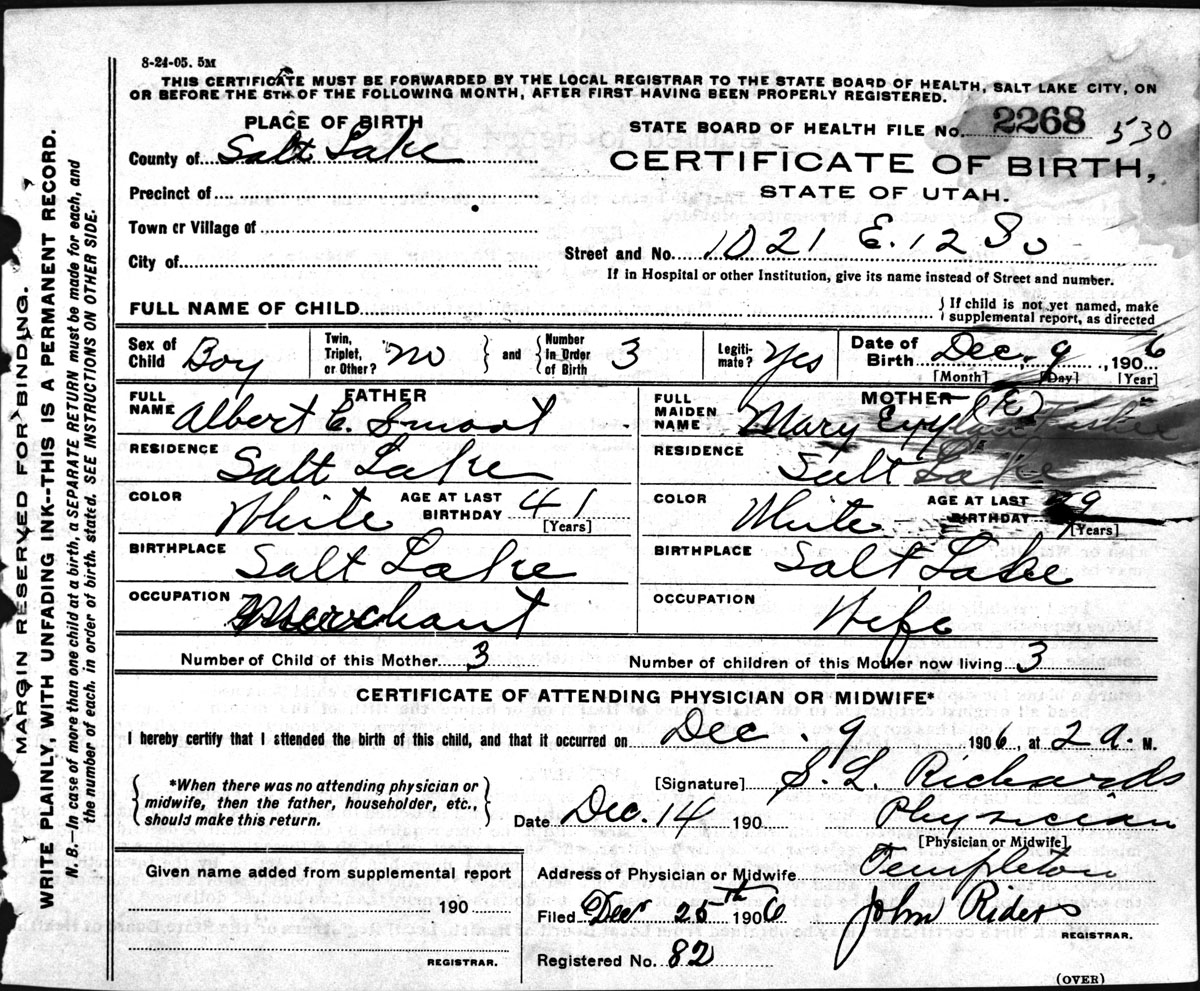 8-24-05. 5M
THIS CERTIFICATE MUST BE FORWARDED BY THE LOCAL REGISTRAR TO THE STATE BOARD OF HEALTH, SALT LAKE CITY, ON
OR BEFORE THE 5TH OF THE FOLLOWING MONTH, AFTER FIRST HAVING BEEN PROPERLY REGISTERED.
PLACE OF BIRTH
STATE BOARD OF HEALTH FILE No. 2268 530
County of Salt Lake
CERTIFICATE OF BIRTH,
STATE OF UTAH.
Precinct of
Town or Village of
Street and No. 1021 E. 12 So
City of
If in Hospital or other Institution, give its name instead of Street and number.
FULL NAME OF CHILD
{ If child is not yet named, make
supplemental report, as directed
Sex of Child Boy
Twin, Triplet, or Other? no
and Number in Order of Birth 3
Legiti-mate? Yes
Date of Birth Dec. 9, 1906
[Month] [Day] [Year]
FATHER
FULL NAME Albert C. Smoot
RESIDENCE Salt Lake
COLOR White AGE AT LAST BIRTHDAY 41
[Years]
BIRTHPLACE Salt Lake
OCCUPATION Merchant
MOTHER
FULL MAIDEN NAME Mary (E)
RESIDENCE Salt Lake
COLOR White AGE AT LAST BIRTHDAY
[Years]
BIRTHPLACE Salt Lake
OCCUPATION Wife
Number of Child of this Mother 3 Number of children of this Mother now living 3
CERTIFICATE OF ATTENDING PHYSICIAN OR MIDWIFE*
I hereby certify that I attended the birth of this child, and that it occurred on Dec. 9 1906, at 2 a. M.
*When there was no attending physician or
midwife, then the father, householder, etc.,
should make this return.
[Signature] S. L. Richards
Date Dec. 14 190 Physician
[Physician or Midwife]
Address of Physician or Midwife Templeton
Filed Dec 25th 1906 John Riders
REGISTRAR.
Registered No. 82
Given name added from supplemental report
190
REGISTRAR.
(OVER)
MARGIN RESERVED FOR BINDING.
WRITE PLAINLY, WITH UNFADING INK--THIS IS A PERMANENT RECORD.
N. B.—In case of more than one child at a birth, a SEPARATE RETURN must be made for each, and
the number of each, in order of birth, stated. SEE INSTRUCTIONS ON OTHER SIDE.